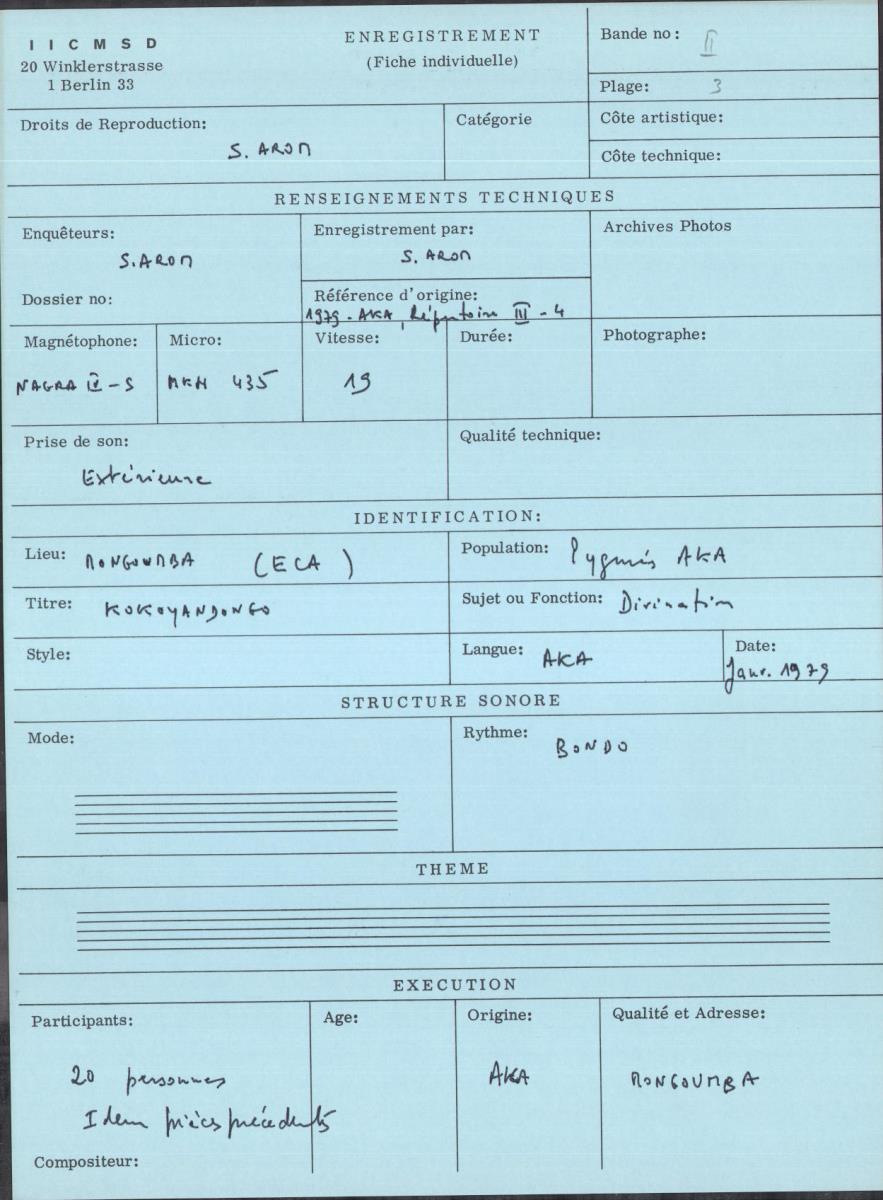 I I C M S D
20 Winklerstrasse
1 Berlin 33
ENREGISTREMENT
(Fiche individuelle)
Bande no: II
Plage: 3
Droits de Reproduction:
S. AROM
Catégorie
Côte artistique:
Côte technique:
RENSEIGNEMENTS TECHNIQUES
Enquêteurs:
S. AROM
Dossier no:
Enregistrement par:
S. AROM
Référence d'origine:
1979 - AKA, Répertoire III - 4
Archives Photos
Magnétophone:
NAGRA IV - S
Micro:
MKH 435
Vitesse:
19
Durée:
Photographe:
Prise de son:
Extérieure
Qualité technique:
IDENTIFICATION:
Lieu: MONGOUMBA (ECA)
Population: Pygmées AKA
Titre: KOKOYANDONGO
Sujet ou Fonction: Divination
Style:
Langue: AKA
Date:
Janv. 1979
STRUCTURE SONORE
Mode:
Rythme:
BONDO
THEME
EXECUTION
Participants:
20 personnes
Idem pièces précédents
Age:
Origine:
AKA
Qualité et Adresse:
MONGOUMBA
Compositeur: